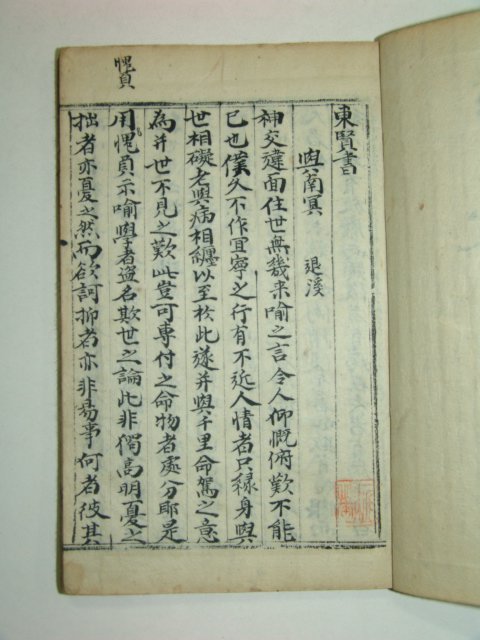 東賢書
與南冥 退溪
神交違面住世無幾来喻之言令人仰慨俯歎不能
已也僕久不作宜寧之行有不近人情者只緣身與
世相礙老與病相纏以至於此遂并與千里命駕之意
為并世不見之歎此豈可專付之命物者處分耶是
用愧負示喻學者盗名欺世之論此非獨高明憂之
拙者亦憂之然而欲訶抑者亦非易事何者彼其
愧負